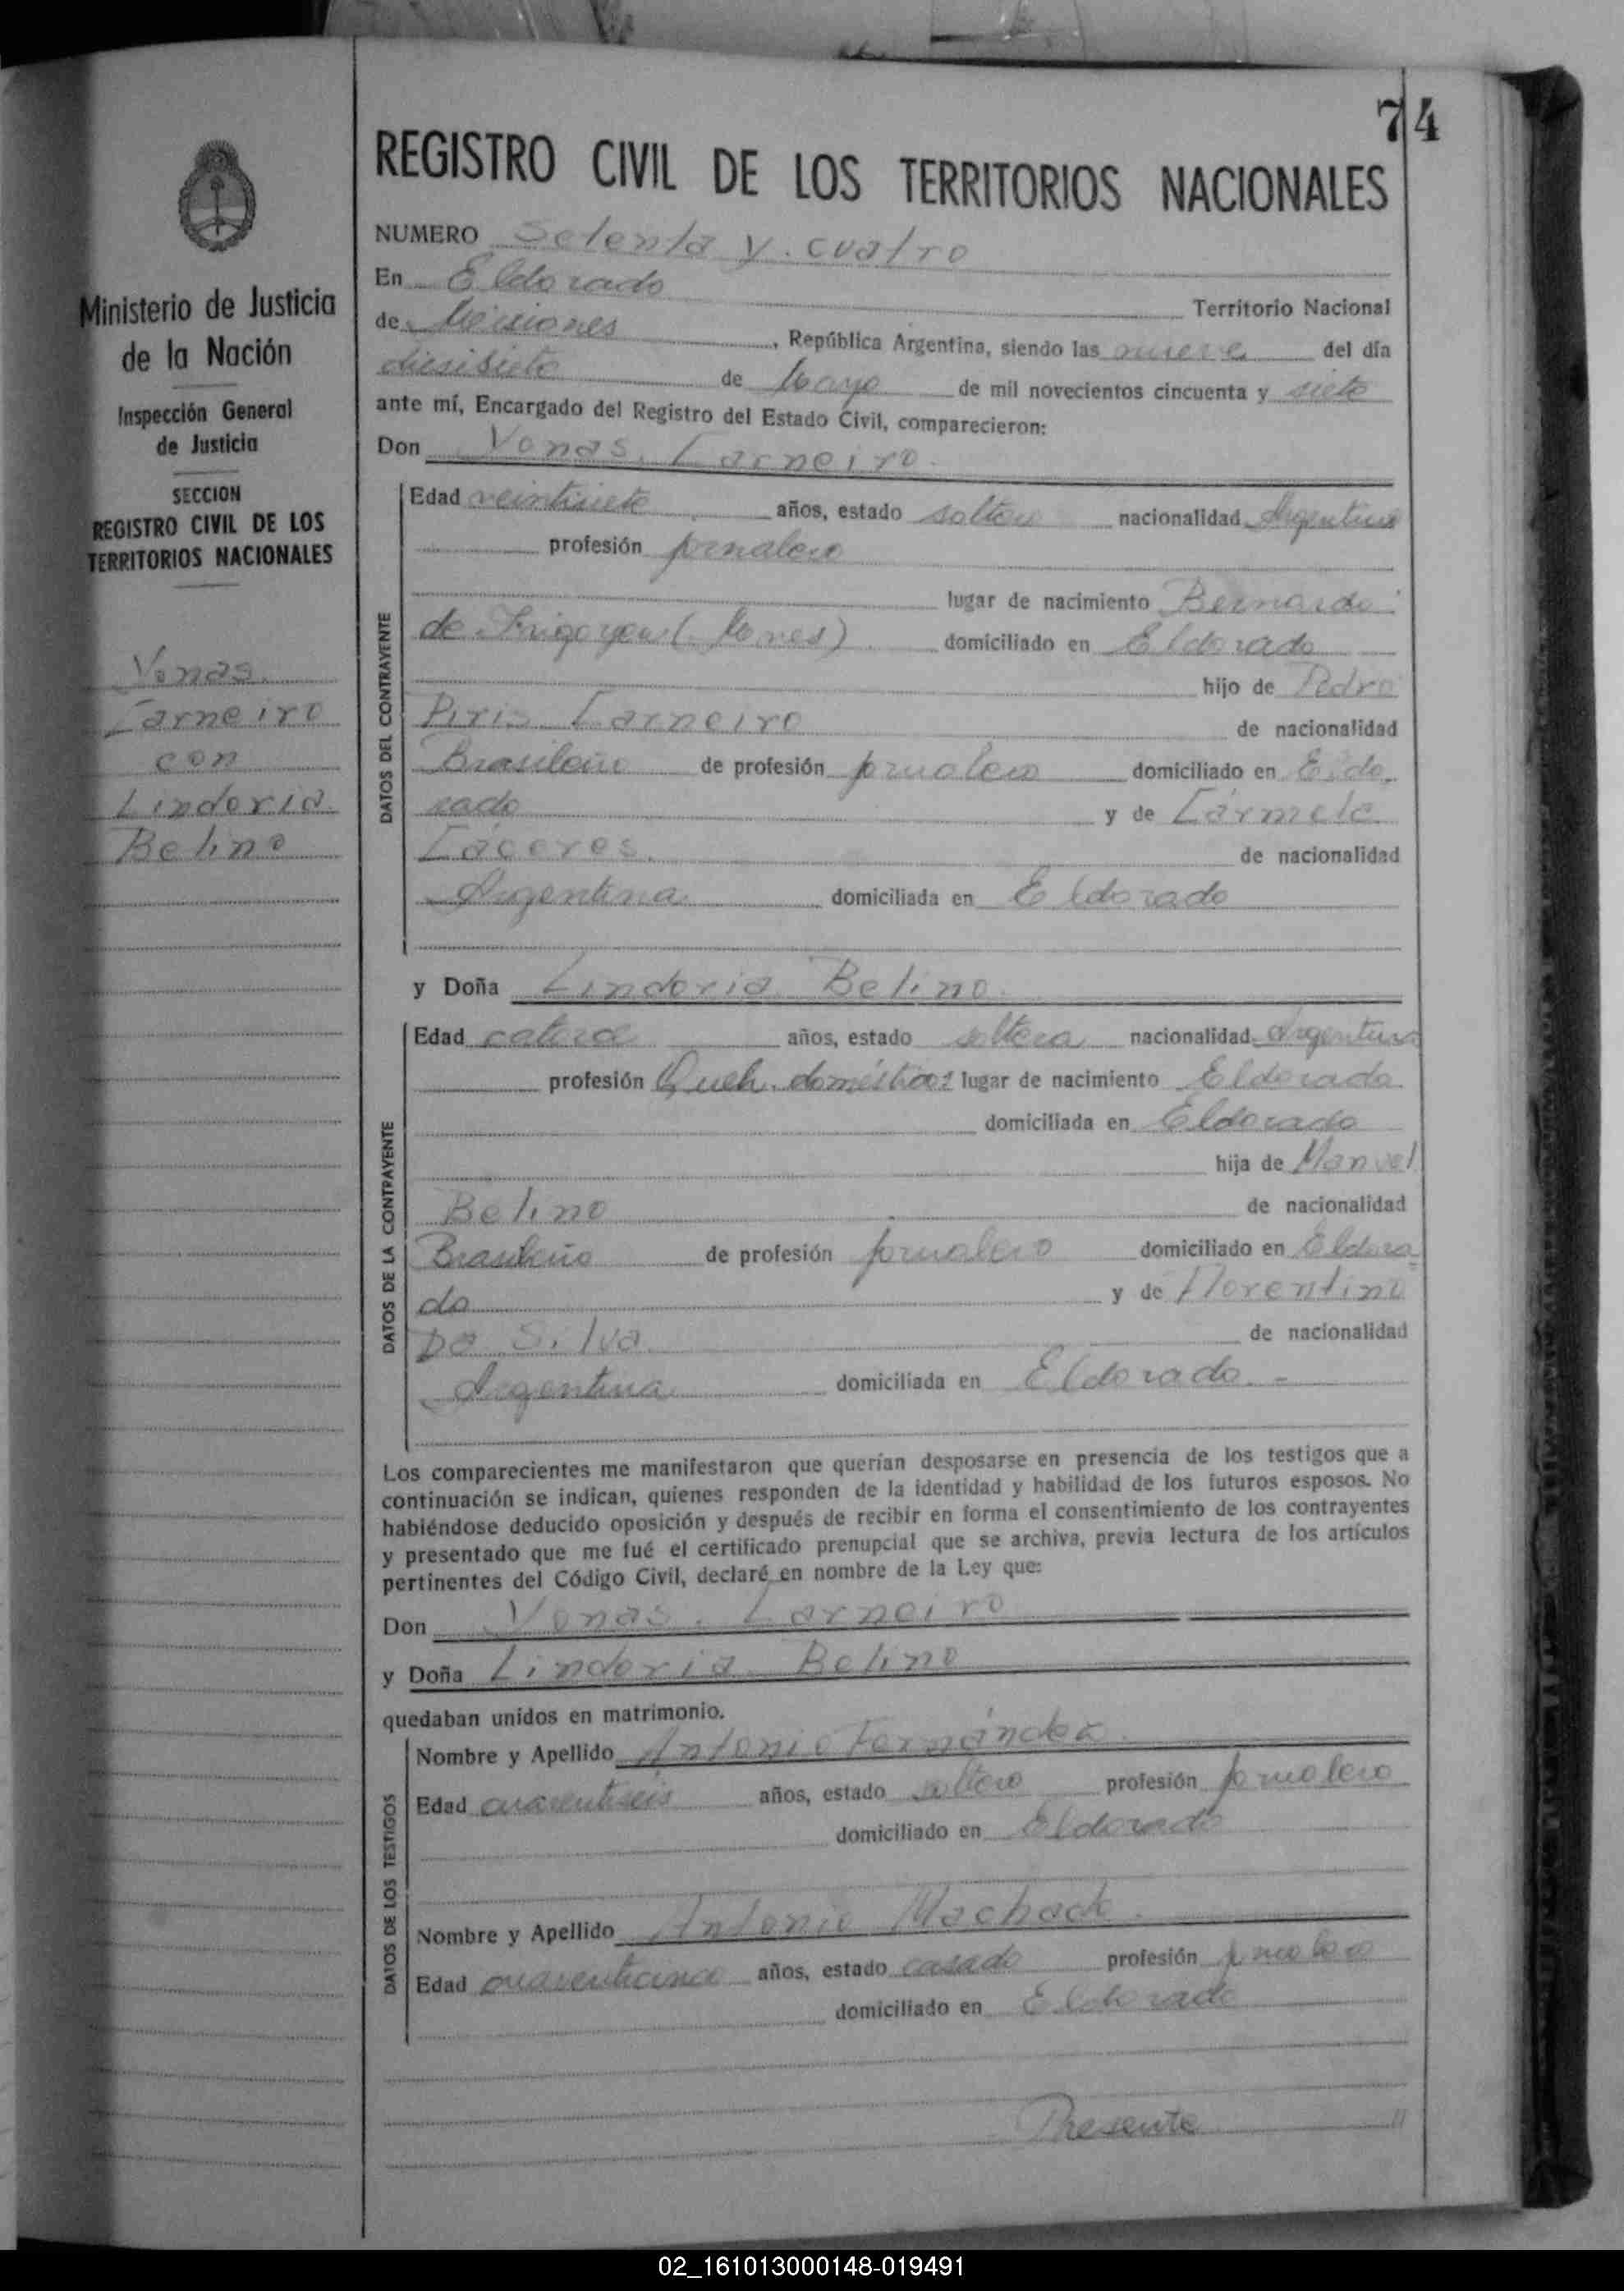 74
REGISTRO CIVIL DE LOS TERRITORIOS NACIONALES
NUMERO Setenta y cuatro
En Eldorado
Territorio Nacional
de Misiones, República Argentina, siendo las nueve del día
diesisiete de Mayo de mil novecientos cincuenta y siete
ante mí, Encargado del Registro del Estado Civil, comparecieron:
Don Yonas Carneiro
Edad veintisiete años, estado soltero nacionalidad Argentino
profesión jornalero
lugar de nacimiento Bernardo
de Irigoyen (Mones) domiciliado en Eldorado
hijo de Pedro
Piris Carneiro de nacionalidad
Brasileño de profesión jornalero domiciliado en Eldo
rado y de Cármela
Cáceres de nacionalidad
Argentina domiciliada en Eldorado
DATOS DEL CONTRAYENTE
y Doña Lindoria Belino
Edad catorce años, estado soltera nacionalidad Argentina
profesión Queh. domésticos lugar de nacimiento Eldorado
domiciliada en Eldorado
hija de Manuel
Belino de nacionalidad
Brasileño de profesión jornalero domiciliado en Eldora
do y de Florentino
Da Silva de nacionalidad
Argentina domiciliada en Eldorado.-
DATOS DE LA CONTRAYENTE
Los comparecientes me manifestaron que querían desposarse en presencia de los testigos que a
continuación se indican, quienes responden de la identidad y habilidad de los futuros esposos. No
habiéndose deducido oposición y después de recibir en forma el consentimiento de los contrayentes
y presentado que me fué el certificado prenupcial que se archiva, previa lectura de los artículos
pertinentes del Código Civil, declaré en nombre de la Ley que:
Don Yonas Carneiro
y Doña Lindoria Belino
quedaban unidos en matrimonio.
Nombre y Apellido Antonio Fernández
Edad cuarentiseis años, estado soltero profesión jornalero
domiciliado en Eldorado
Nombre y Apellido Antonio Machado
Edad cuarenticinco años, estado casado profesión jornalero
domiciliado en Eldorado
DATOS DE LOS TESTIGOS
Presente //
Ministerio de Justicia
de la Nación
Inspección General
de Justicia
SECCION
REGISTRO CIVIL DE LOS
TERRITORIOS NACIONALES
Yonas
Carneiro
con
Lindoria
Belino
02_161013000148-019491